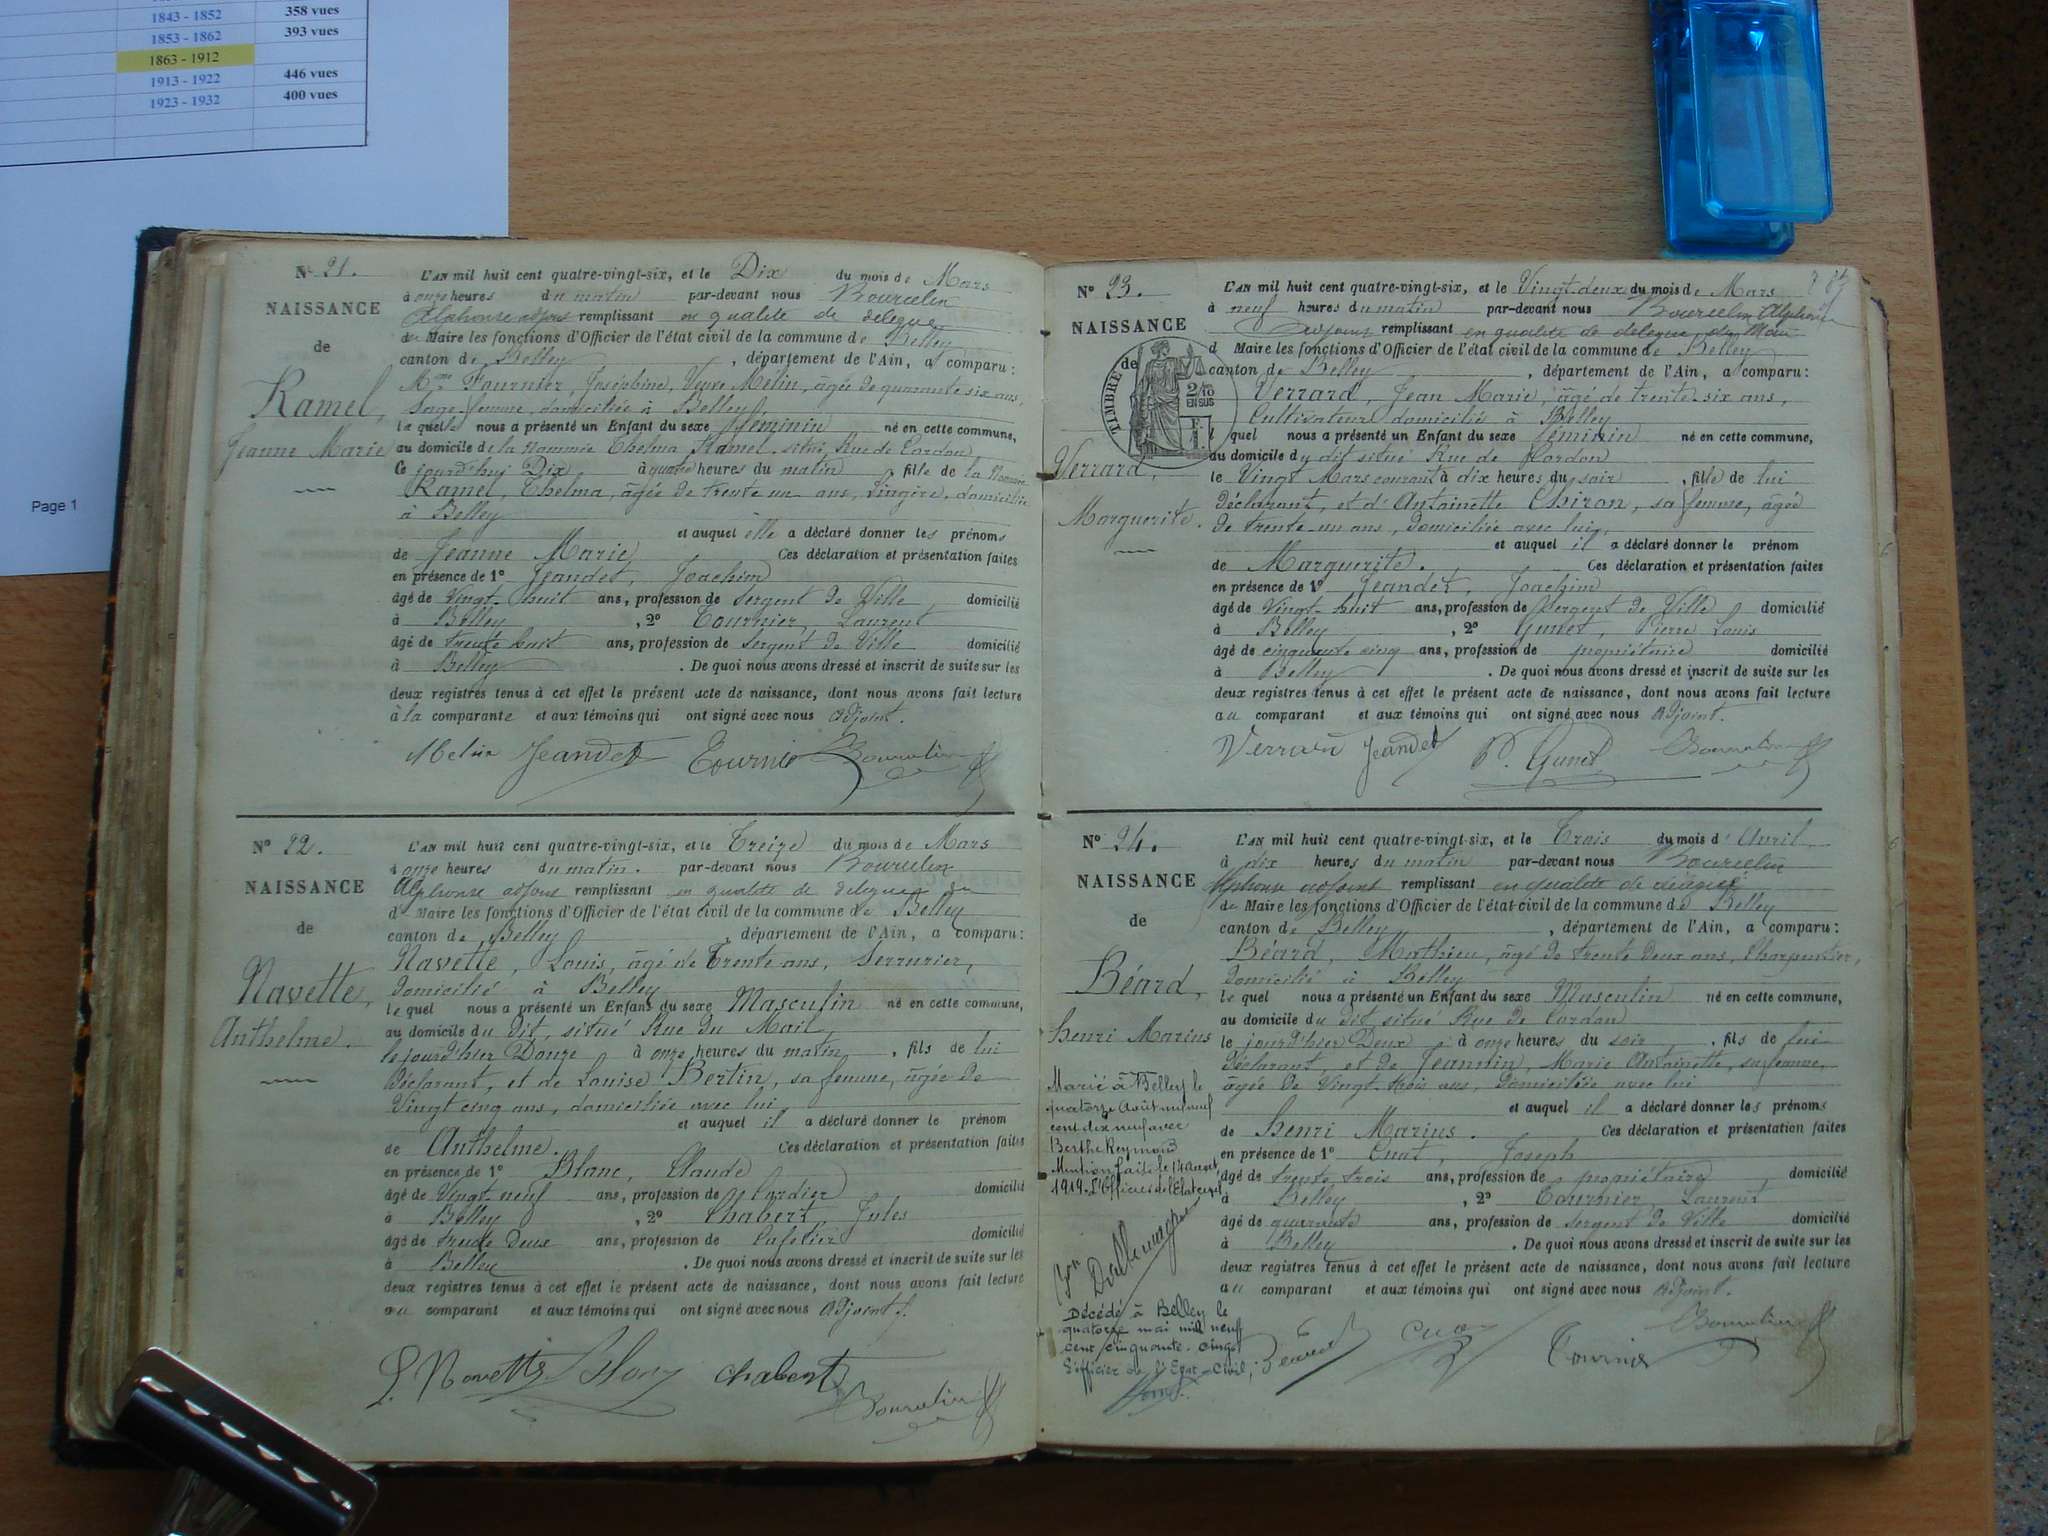 1843 - 1852 358 vues
1853 - 1862 393 vues
1863 - 1912
1913 - 1922 446 vues
1923 - 1932 400 vues
Page 1
N° 21.
NAISSANCE
de
Ramel,
Jeanne Marie
L'AN mil huit cent quatre-vingt-six, et le Dix du mois de Mars
à onze heures du matin par-devant nous Bourcelin
Alphonse adjoint remplissant en qualité de délégué
du Maire les fonctions d'Officier de l'état civil de la commune de Belley
canton de Belley, département de l'Ain, a comparu:
Mme Fournier, Joséphine, Veuve Mélin, âgée de quarante six ans,
Sage-femme, domiciliée à Belley,
laquelle nous a présenté un Enfant du sexe féminin né en cette commune,
au domicile de la nommée Thelma Ramel, situé Rue de Cordon
Ce jourd'hui Dix à quatre heures du matin, fille de la Nommée
Ramel, Thelma, âgée de trente un ans, lingère, domiciliée
à Belley
et auquel elle a déclaré donner les prénoms
de Jeanne Marie Ces déclaration et présentation faites
en présence de 1° Jeandet, Joachim
âgé de Vingt-huit ans, profession de Sergent de Ville domicilié
à Belley, 2° Tournier, Laurent
âgé de trente huit ans, profession de Sergent de Ville domicilié
à Belley. De quoi nous avons dressé et inscrit de suite sur les
deux registres tenus à cet effet le présent acte de naissance, dont nous avons fait lecture
à la comparante et aux témoins qui ont signé avec nous adjoint.
Mélin Jeandet Tournier Bourcelin
N° 22.
NAISSANCE
de
Navette,
Anthelme.
L'AN mil huit cent quatre-vingt-six, et le Treize du mois de Mars
à onze heures du matin. par-devant nous Bourcelin
Alphonse adjoint remplissant en qualité de délégué du
d Maire les fonctions d'Officier de l'état civil de la commune de Belley
canton de Belley, département de l'Ain, a comparu:
Navette, Louis, âgé de Trente ans, Serrurier,
domicilié à Belley
lequel nous a présenté un Enfant du sexe Masculin né en cette commune,
au domicile du dit, situé Rue du Mail,
le jourd'hier Douze à onze heures du matin, fils de lui
déclarant, et de Louise Bertin, sa femme, âgée de
Vingt cinq ans, domiciliée avec lui
et auquel il a déclaré donner le prénom
de Anthelme. Ces déclaration et présentation faites
en présence de 1° Blanc, Claude
âgé de Vingt-neuf ans, profession de domicilié
à Belley, 2° Chabert Jules
âgé de trente deux ans, profession de Cafetier domicilié
à Belley. De quoi nous avons dressé et inscrit de suite sur les
deux registres tenus à cet effet le présent acte de naissance, dont nous avons fait lecture
au comparant et aux témoins qui ont signé avec nous adjoint.
L. Navette Blanc Chabert
Bourcelin
N° 23.
NAISSANCE
de
TIMBRE
2/10
EN SUS
Verrard,
Marguerite.
L'AN mil huit cent quatre-vingt-six, et le Vingt-deux du mois de Mars
à neuf heures du matin par-devant nous Bourcelin Alphonse
adjoint remplissant en qualité de délégué du Maire
d Maire les fonctions d'Officier de l'état civil de la commune de Belley
canton de Belley, département de l'Ain, a comparu:
Verrard, Jean Marie, âgé de trente-six ans,
Cultivateur domicilié à Belley
lequel nous a présenté un Enfant du sexe féminin né en cette commune,
au domicile du dit situé Rue de Cordon
le Vingt Mars courant à dix heures du soir, fille de lui
déclarant, et d'Antoinette Chiron, sa femme, âgée
de trente un ans, domiciliée avec lui,
et auquel il a déclaré donner le prénom
de Marguerite. Ces déclaration et présentation faites
en présence de 1° Jeandet, Joachim
âgé de Vingt-huit ans, profession de Sergent de Ville domicilié
à Belley, 2° Gunet, Pierre Louis
âgé de cinquante cinq ans, profession de propriétaire domicilié
à Belley. De quoi nous avons dressé et inscrit de suite sur les
deux registres tenus à cet effet le présent acte de naissance, dont nous avons fait lecture
au comparant et aux témoins qui ont signé avec nous adjoint.
Verrard Jeandet P. Gunet Bourcelin
N° 24.
NAISSANCE
de
Béard,
Henri Marius
Marié à Belley le
quatorze Août mil neuf
cent dix neuf avec
Berthe Reymond
Mention faite le 14 août
1919. L'Officier de l'Etat civil
Décédé à Belley le
quatorze mai mil neuf
cent cinquante-cinq
L'officier de l'Etat-Civil,
L'AN mil huit cent quatre-vingt-six, et le Trois du mois d'Avril
à dix heures du matin par-devant nous Bourcelin
Alphonse adjoint remplissant en qualité de délégué
du Maire les fonctions d'Officier de l'état-civil de la commune de Belley
canton de Belley, département de l'Ain, a comparu:
Béard, Mathieu, âgé de trente deux ans, Charpentier,
domicilié à Belley
lequel nous a présenté un Enfant du sexe Masculin né en cette commune,
au domicile du dit situé Rue de Cordon
le jourd'hier Deux à onze heures du soir, fils de lui
déclarant, et de Jeannin, Marie Antoinette, sa femme,
âgée de Vingt-trois ans, domiciliée avec lui
et auquel il a déclaré donner les prénoms
de Henri Marius. Ces déclaration et présentation faites
en présence de 1° Cuat, Joseph
âgé de trente trois ans, profession de propriétaire, domicilié
à Belley, 2° Tournier, Laurent
âgé de quarante ans, profession de Sergent de Ville domicilié
à Belley. De quoi nous avons dressé et inscrit de suite sur les
deux registres tenus à cet effet le présent acte de naissance, dont nous avons fait lecture
au comparant et aux témoins qui ont signé avec nous adjoint.
Bourcelin
Béard Cuat Tournier